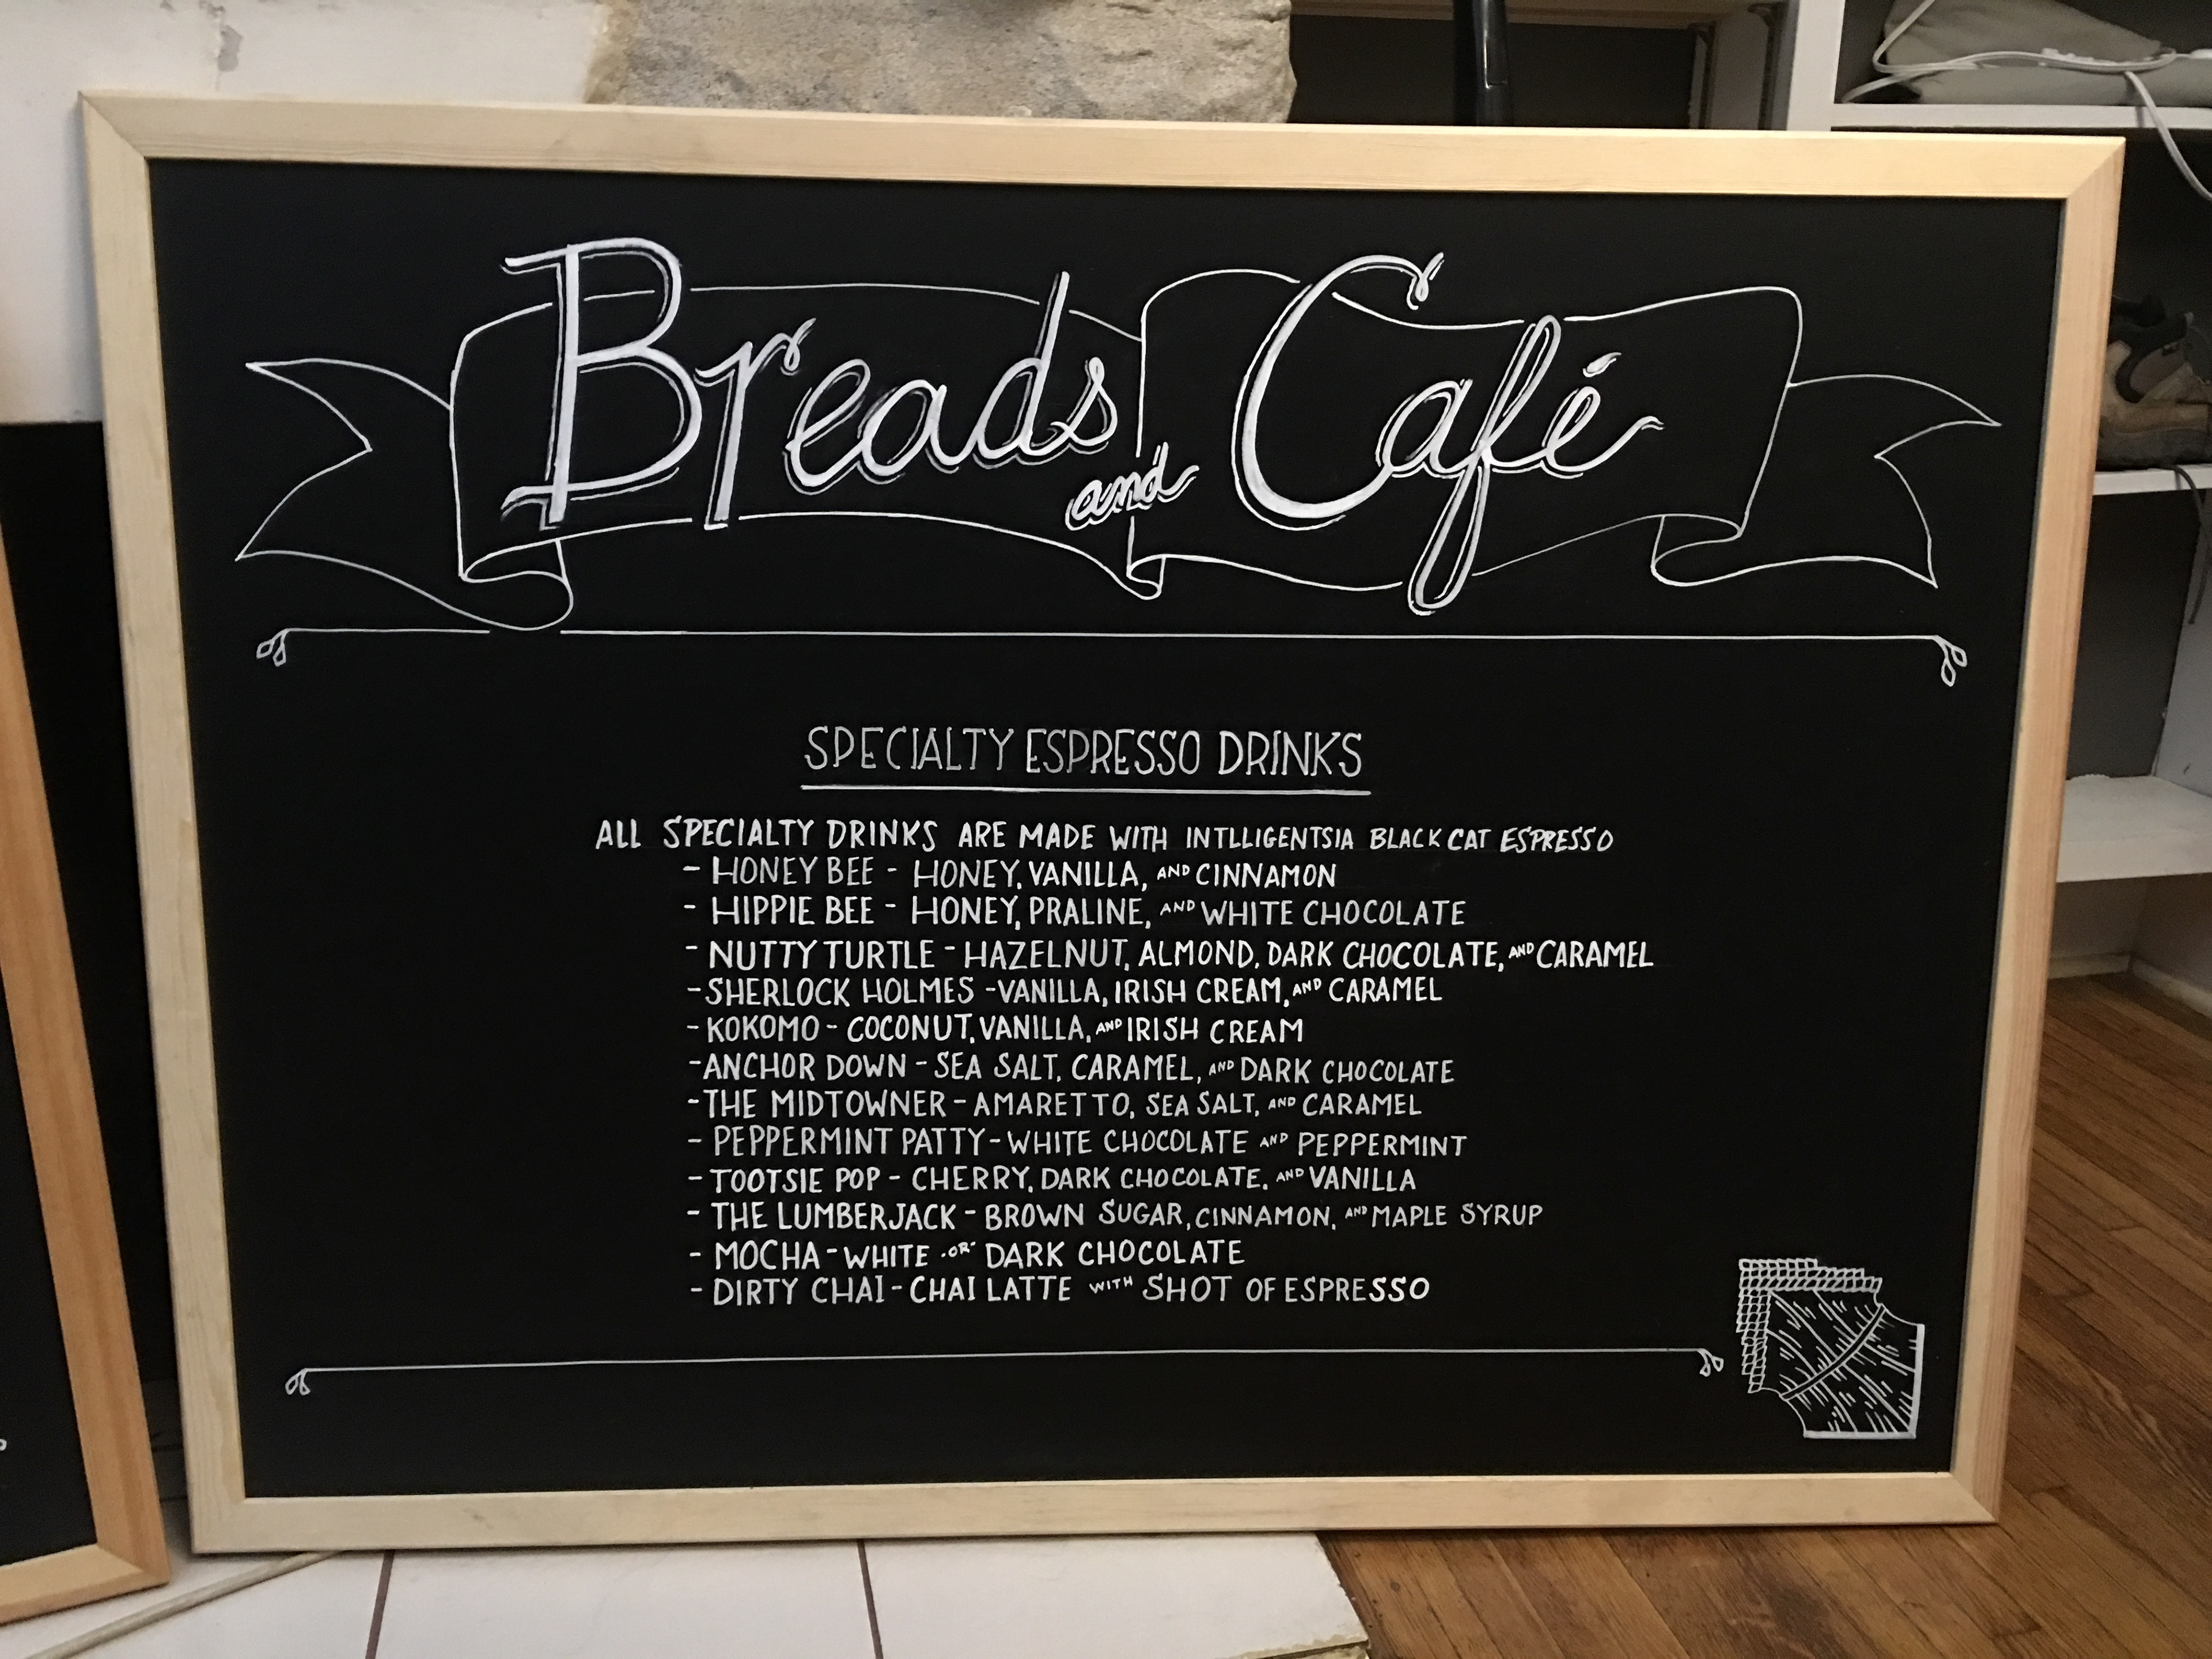 Breads and Café
SPECIALTY ESPRESSO DRINKS
ALL SPECIALTY DRINKS ARE MADE WITH INTLLIGENTSIA BLACK CAT ESPRESSO
- HONEY BEE - HONEY, VANILLA, AND CINNAMON
- HIPPIE BEE - HONEY, PRALINE, AND WHITE CHOCOLATE
- NUTTY TURTLE - HAZELNUT, ALMOND, DARK CHOCOLATE, AND CARAMEL
- SHERLOCK HOLMES - VANILLA, IRISH CREAM, AND CARAMEL
- KOKOMO - COCONUT, VANILLA, AND IRISH CREAM
- ANCHOR DOWN - SEA SALT, CARAMEL, AND DARK CHOCOLATE
- THE MIDTOWNER - AMARETTO, SEA SALT, AND CARAMEL
- PEPPERMINT PATTY - WHITE CHOCOLATE AND PEPPERMINT
- TOOTSIE POP - CHERRY, DARK CHOCOLATE, AND VANILLA
- THE LUMBERJACK - BROWN SUGAR, CINNAMON, AND MAPLE SYRUP
- MOCHA - WHITE -OR- DARK CHOCOLATE
- DIRTY CHAI - CHAI LATTE WITH SHOT OF ESPRESSO